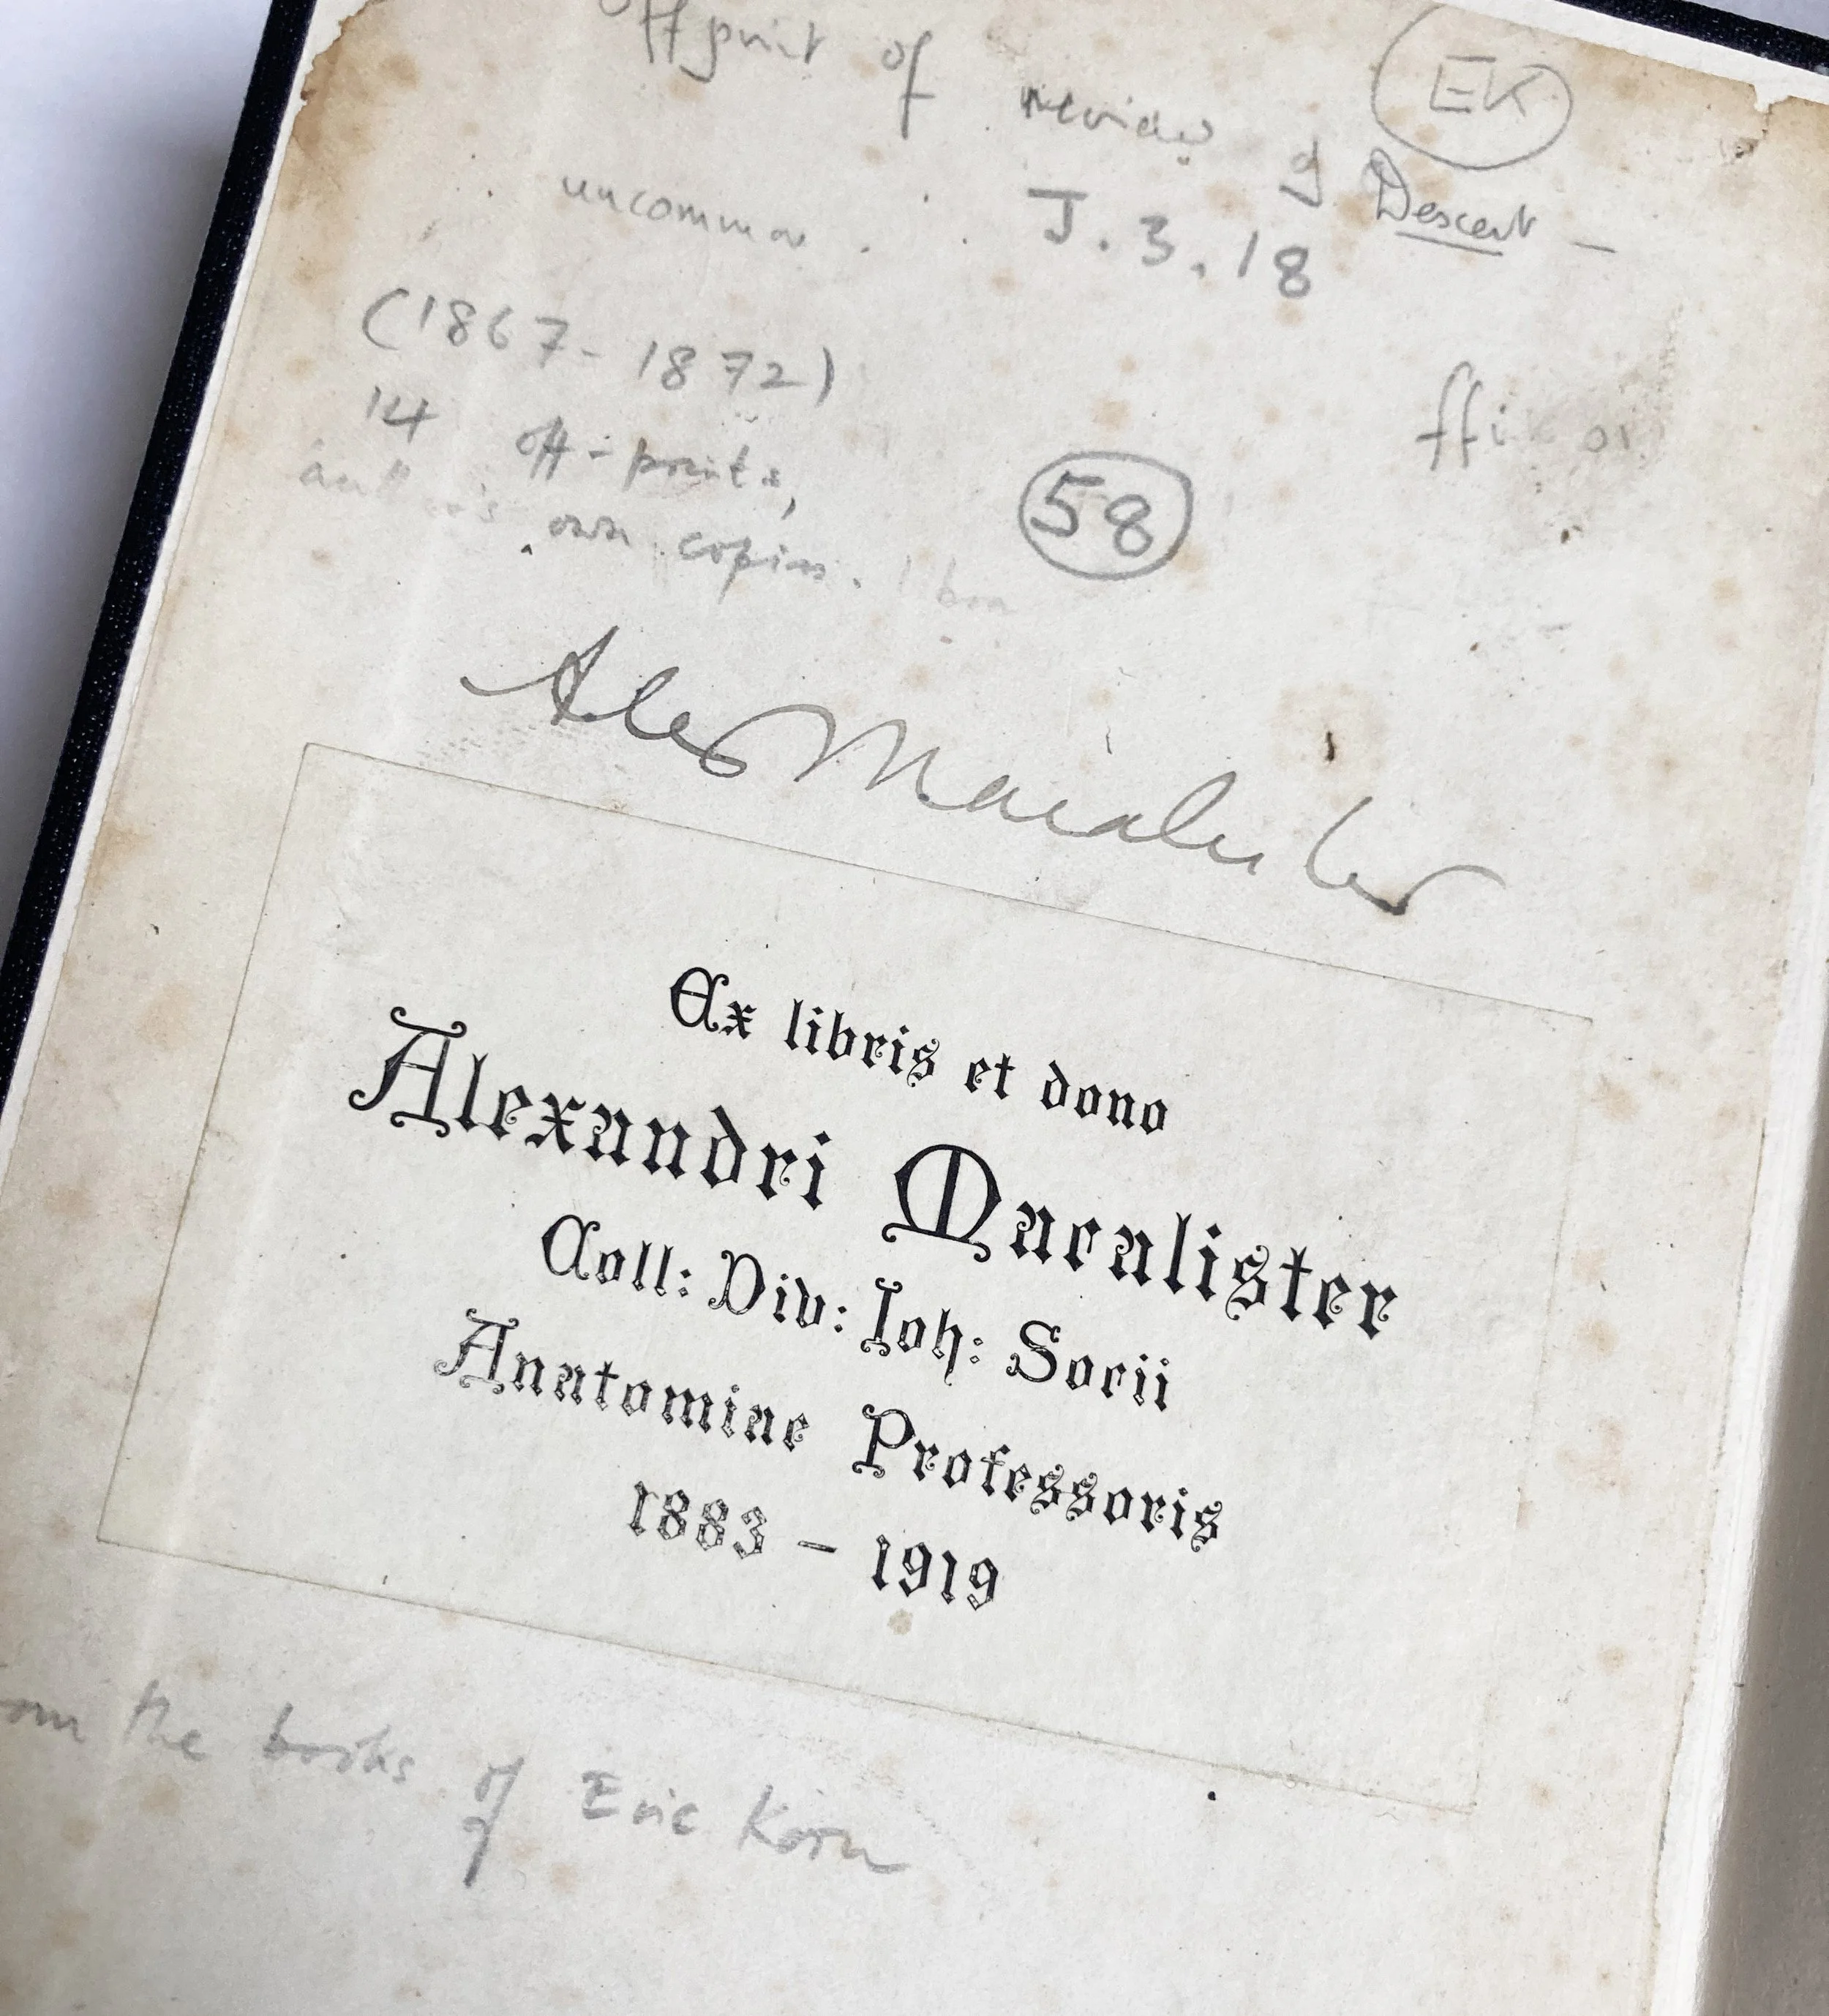 Offprint of review of Descent —
EK
uncommon . . J.3.18
(1867-1872)
14 off-prints,
author's own copies.
58
Alex Macalister
Ex libris et dono
Alexandri Macalister
Coll: Div: Ioh: Socii
Anatomiae Professoris
1883 – 1919
the books of Eric Korn